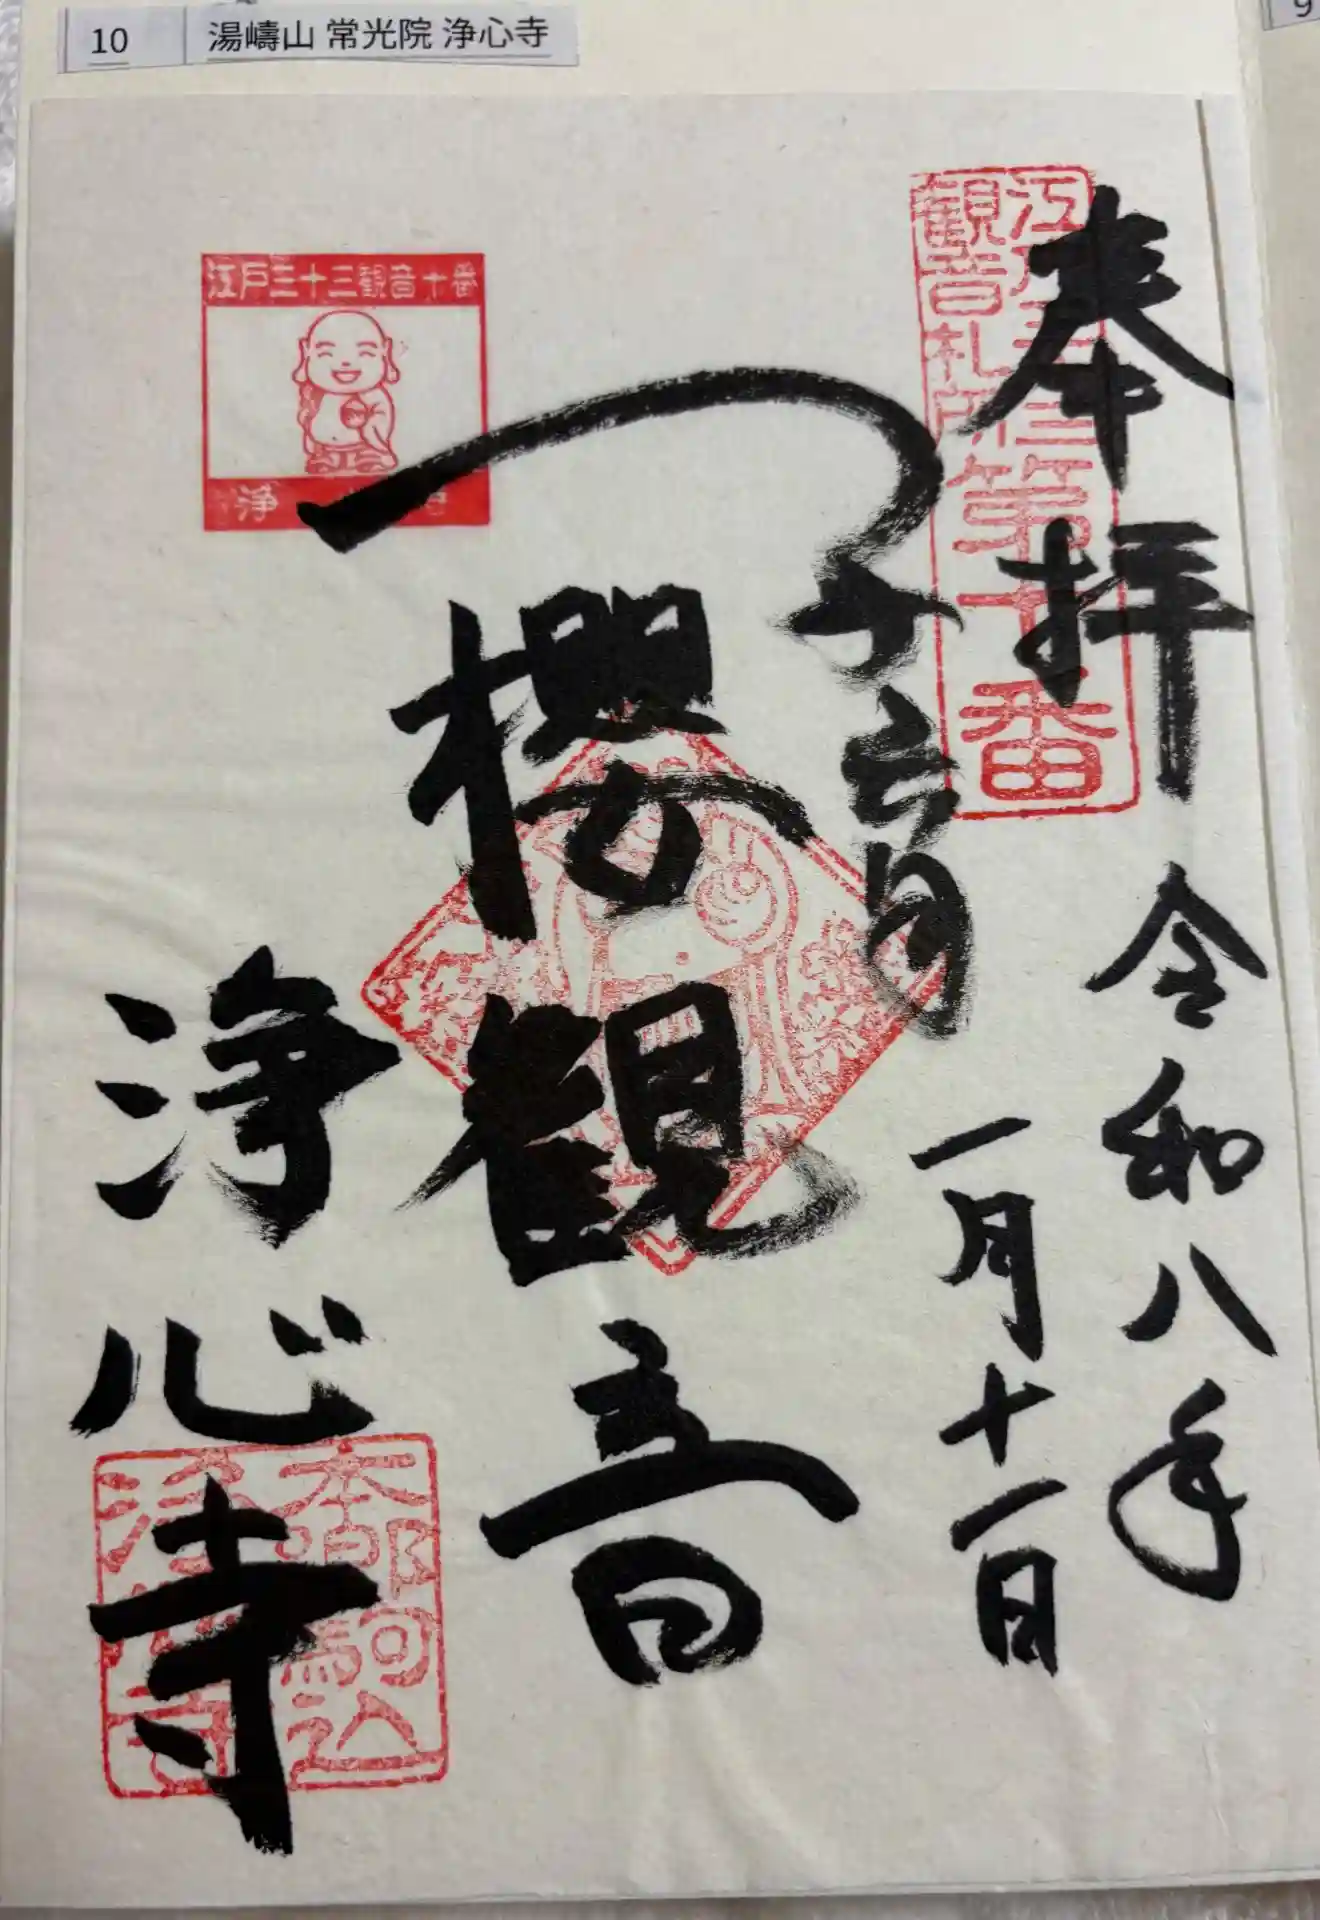 10 湯嶹山 常光院 浄心寺
9
奉拝 令和八年
一月十一日
子育
櫻観音
浄心寺
江戸三十三
観音札所第十番
江戸三十三観音十番
浄
本郷駒込
浄心寺